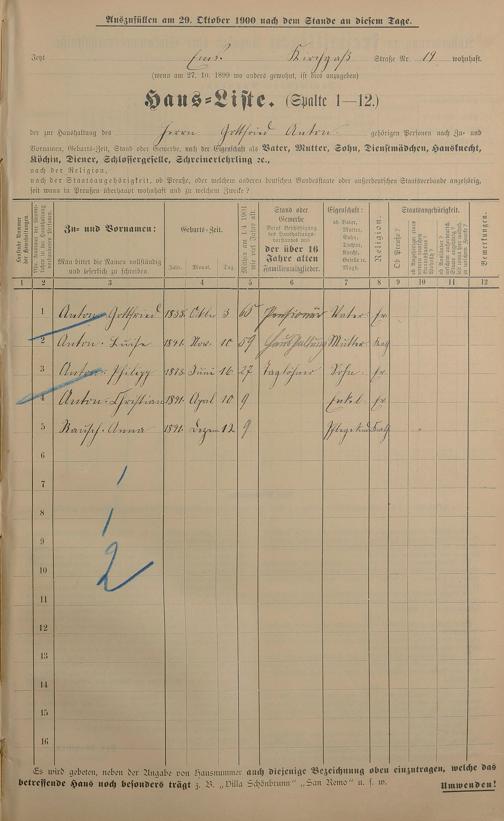 Auszufüllen am 29. Oktober 1900 nach dem Stande an diesem Tage.
Jetzt Ems. Kirchgaß Straße Nr. 19 wohnhaft.
(wenn am 27. 10. 1899 wo anders gewohnt, ist dies anzugeben)
Haus-Liste. (Spalte 1—12.)
der zur Haushaltung des Herrn Gottfried Anton gehörigen Personen nach Zu- und
Vornamen, Geburts-Zeit, Stand oder Gewerbe, nach der Eigenschaft als Vater, Mutter, Sohn, Dienstmädchen, Hausknecht,
Köchin, Diener, Schlossergeselle, Schreinerlehrling ec.,
nach der Religion,
nach der Staatsangehörigkeit, ob Preuße, oder welchem anderen deutschen Bundesstaate oder außerdeutschen Staatsverbande angehörig,
seit wann in Preußen überhaupt wohnhaft und zu welchem Zwecke?
Zu- und Vornamen:
Man bittet die Namen vollständig und leserlich zu schreiben.
Geburts-Zeit.
Jahr. Monat. Tag.
Mithin am 1/4 1901 wie viel Jahre alt.
Stand oder Gewerbe
der über 16 Jahre alten Familienmitglieder.
Eigenschaft:
ob Vater, Mutter, Sohn, Tochter, Knecht, Geselle, Magd.
Religion.
Staatsangehörigkeit.
Ob Preuße?
Bemerkungen.
1 2 3 4 5 6 7 8 9 10 11 12
1 Anton Gottfried 1835 Oktbr 3 65 Pensionär Vater Ev
2 Anton Luise 1841 Nov. 10 59 Haushaltung Mutter
3 Anton Philipp 1873 Juni 16 27 Taglöhner Sohn Ev
4 Anton Christian 1891 Apral 10 9 Enkel Ev
5 Rausch Anna 1891 Dezem 12 9 Pflegekind Kath
6
7 1
8 1
9
10 2
11
12
13
14
15
16
Es wird gebeten, neben der Angabe von Hausnummer auch diejenige Bezeichnung oben einzutragen, welche das
betreffende Haus noch besonders trägt z. B. „Villa Schönbrunn" „San Remo" u. s. w.
Umwenden!